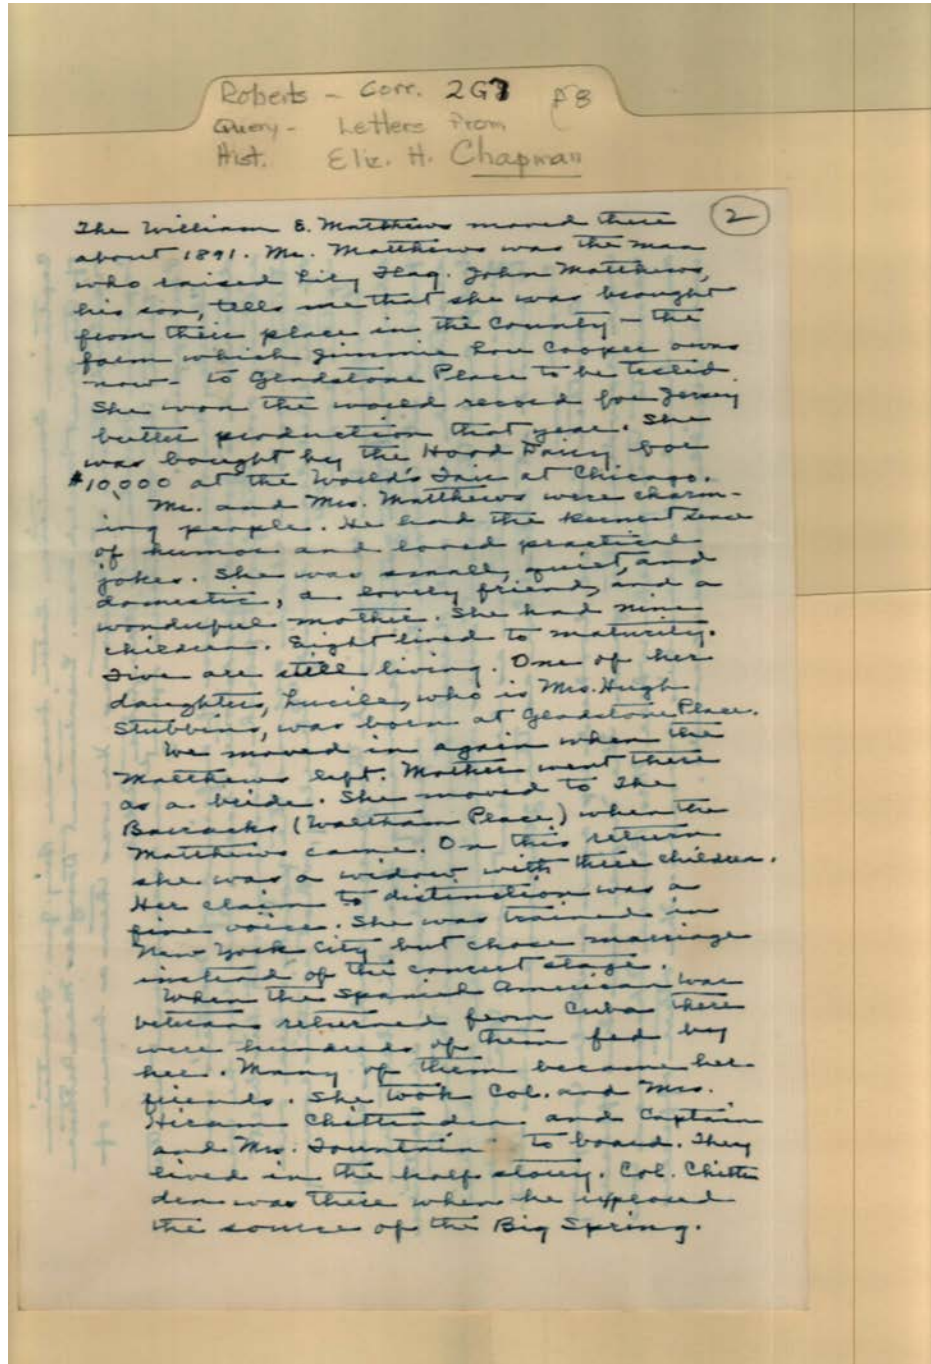 Roberts - Corr. 2G7 P8
Query - Letters From
Hist. Eliz. H. Chapman
2
The William E. Matthews moved there
about 1891. Mr. Matthews was the man
who raised Lily Flag. John Matthews,
his son, tells me that she was brought
from their place in the County - the
farm which Jimmie Lou Cooper owns
now - to Gladstone Place to be tested.
She won the world record for Jersey
butter production that year. She
was bought by the Hood Dairy for
$10,000 at the World's Fair at Chicago.
Mr. and Mrs. Matthews were charm-
ing people. He had the keenest sense
of humor and loved practical
jokes. She was small, quiet, and
domestic, a lovely friend, and a
wonderful mother. She had nine
children. Eight lived to maturity.
Five are still living. One of her
daughters, Lucile, who is Mrs. Hugh
Stubbins, was born at Gladstone Place.
We moved in again when the
Matthews left. Mother went there
as a bride. She moved to The
Barracks (Waltham Place) when the
Matthews came. On this return
she was a widow with three children.
Her claim to distinction was a
fine voice. She was trained in
New York City but chose marriage
instead of the concert stage.
When the Spanish American War
veterans returned from Cuba there
were hundreds of them fed by
her. Many of them became her
friends. She took Col. and Mrs.
Hiram Chittenden and Captain
and Mrs. Fountain to board. They
lived in the half story. Col. Chitten
den was there when he explored
the source of the Big Spring.